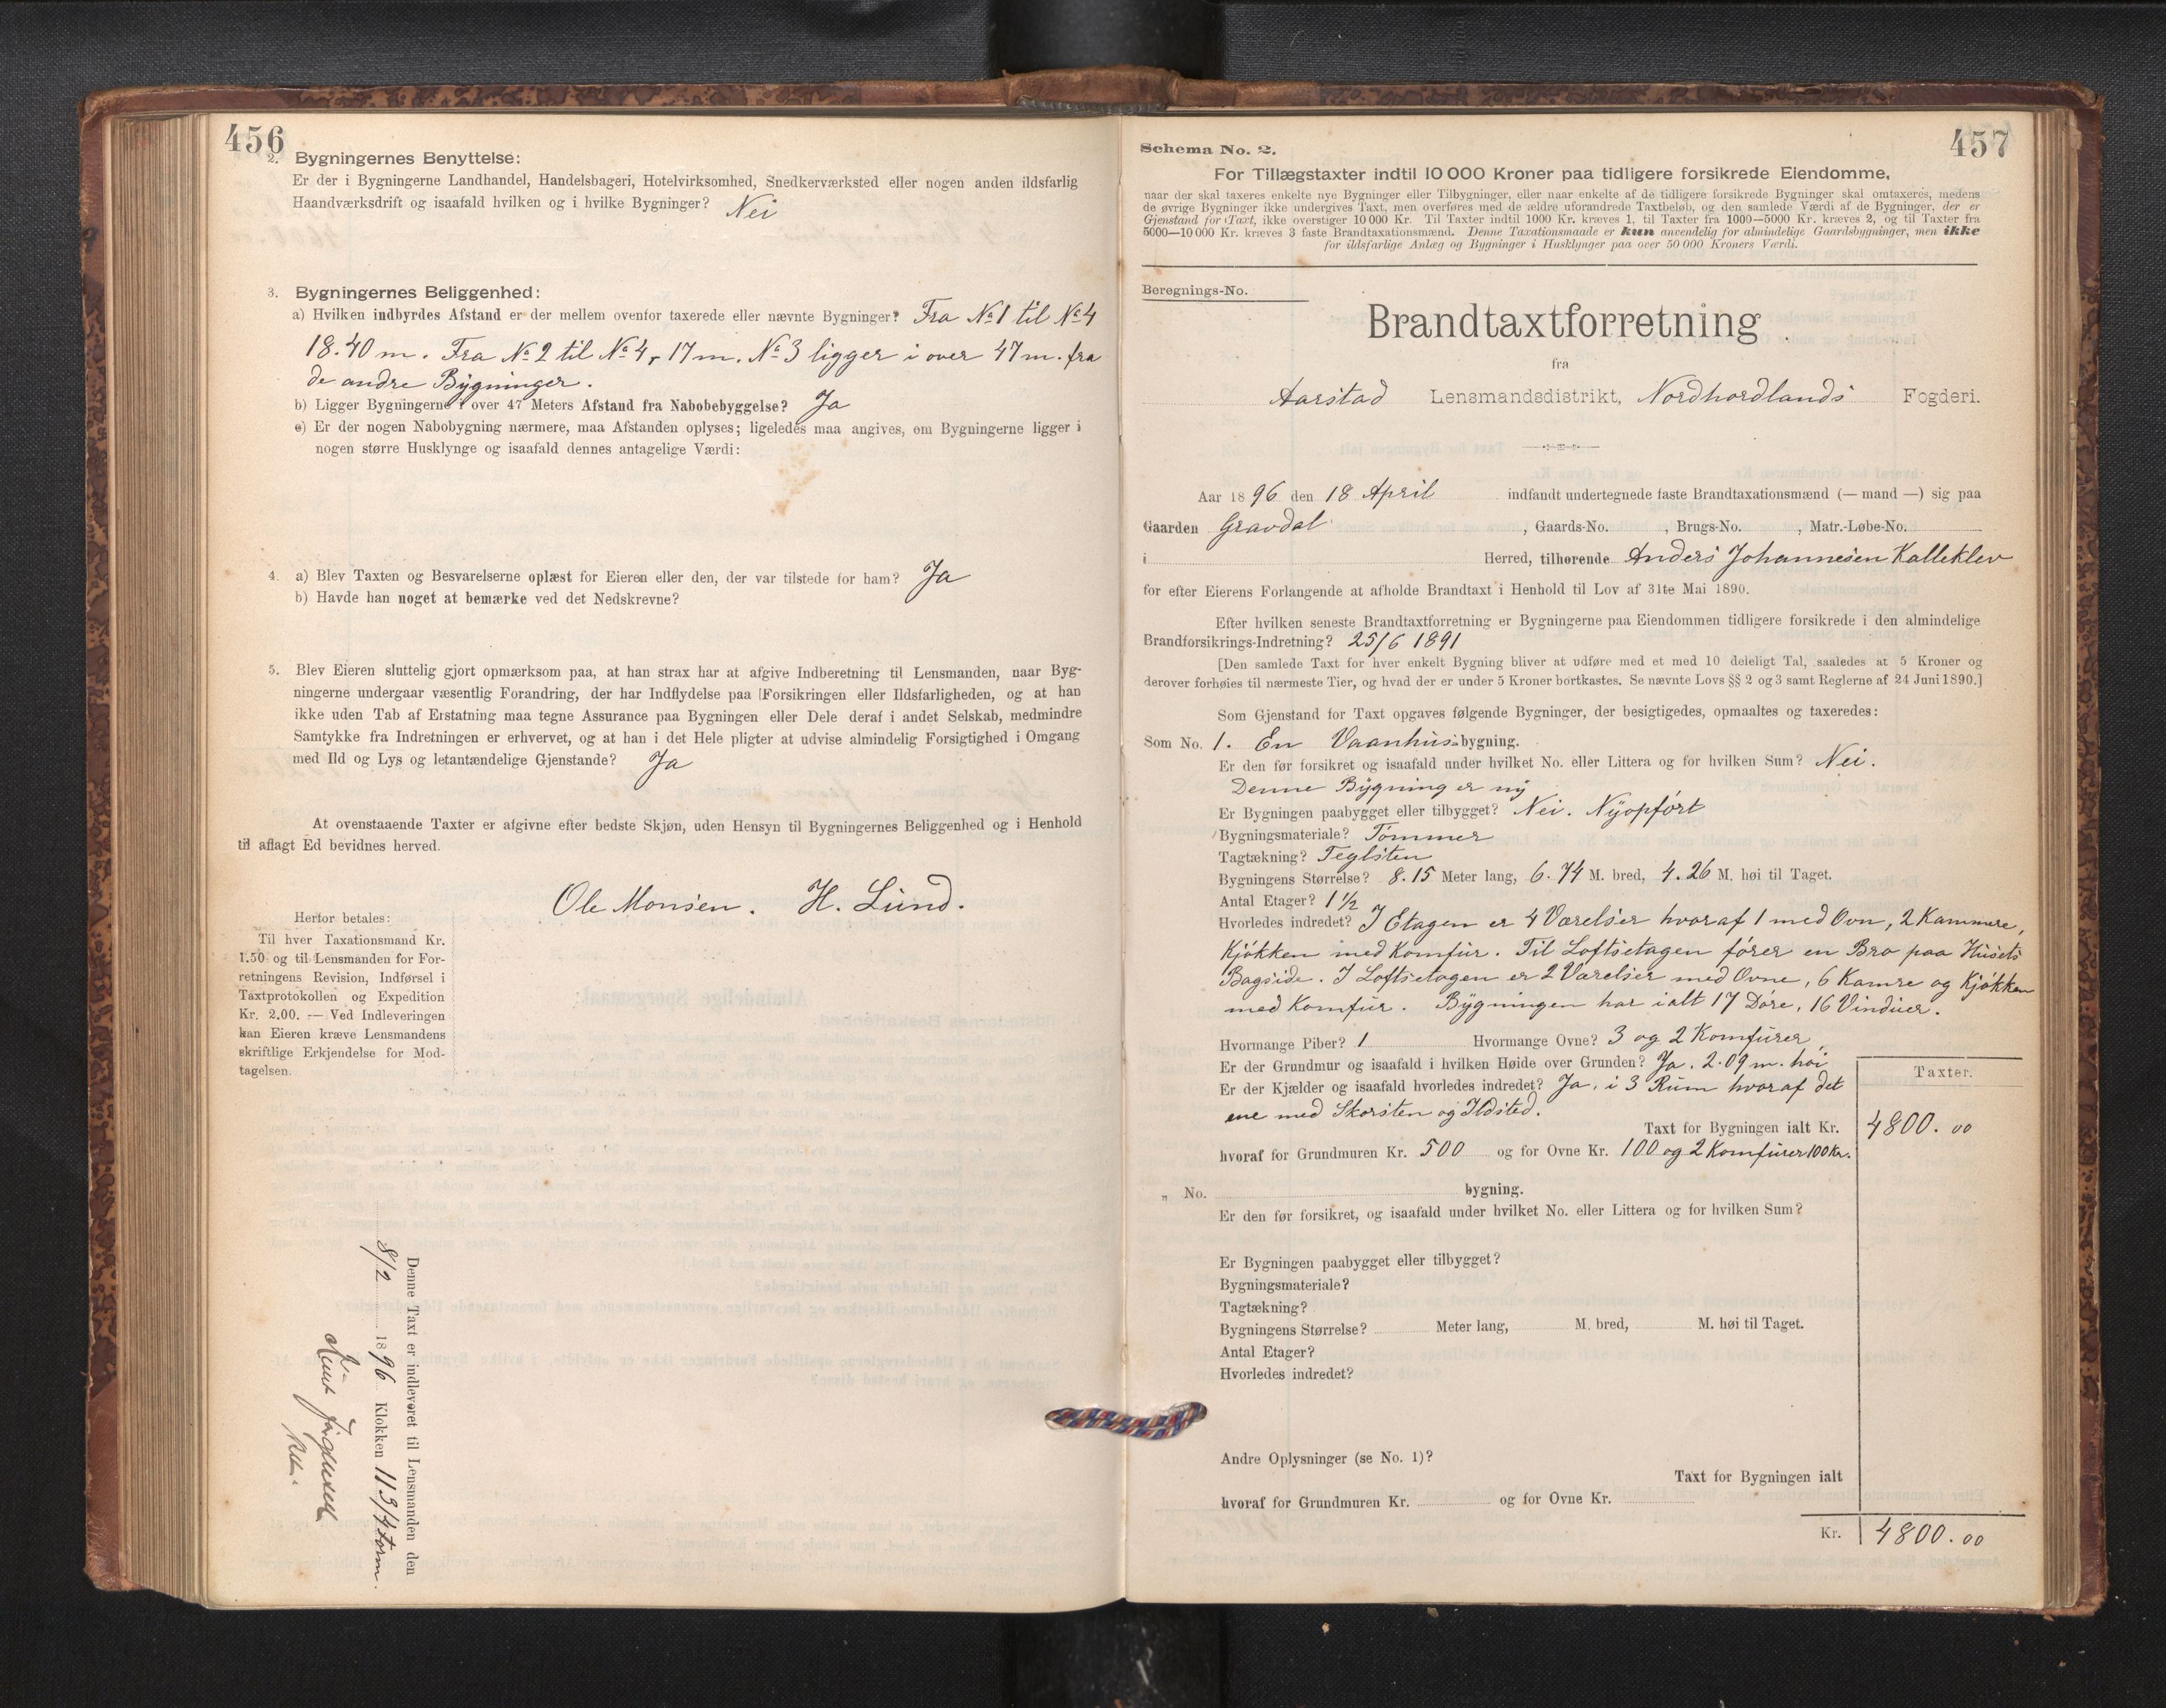 456
2. Bygningernes Benyttelse:
Er der i Bygningerne Landhandel, Handelsbageri, Hotelvirksomhed, Snedkerværksted eller nogen anden ildsfarlig
Haandværksdrift og isaafald hvilken og i hvilke Bygninger? Nei
3. Bygningernes Beliggenhed:
a) Hvilken indbyrdes Afstand er der mellem ovenfor taxerede eller nævnte Bygninger? Fra No 1 til No 4
18.40 m. Fra No 2 til No 4, 17 m. No 3 ligger i over 47 m. fra
de andre Bygninger.
b) Ligger Bygningerne i over 47 Meters Afstand fra Nabobebyggelse? Ja
c) Er der nogen Nabobygning nærmere, maa Afstanden oplyses; ligeledes maa angives, om Bygningerne ligger i
nogen større Husklynge og isaafald dennes antagelige Værdi:
4. a) Blev Taxten og Besvarelserne oplæst for Eieren eller den, der var tilstede for ham? Ja
b) Havde han noget at bemærke ved det Nedskrevne?
5. Blev Eieren sluttelig gjort opmærksom paa, at han strax har at afgive Indberetning til Lensmanden, naar Byg-
ningerne undergaar væsentlig Forandring, der har Indflydelse paa Forsikringen eller Ildsfarligheden, og at han
ikke uden Tab af Erstatning maa tegne Assurance paa Bygningen eller Dele deraf i andet Selskab, medmindre
Samtykke fra Indretningen er erhvervet, og at han i det Hele pligter at udvise almindelig Forsigtighed i Omgang
med Ild og Lys og letantændelige Gjenstande? Ja
At ovenstaaende Taxter er afgivne efter bedste Skjøn, uden Hensyn til Bygningernes Beliggenhed og i Henhold
til aflagt Ed bevidnes herved.
Ole Monsen. H. Lund.
Herfor betales:
Til hver Taxationsmand Kr.
1.50 og til Lensmanden for For-
retningens Revision, Indførsel i
Taxtprotokollen og Expedition
Kr. 2.00. — Ved Indleveringen
kan Eieren kræve Lensmandens
skriftlige Erkjendelse for Mod-
tagelsen.
Denne Taxt er indleveret til Lensmanden den
8/2 1896 Klokken 11 3/4 form.
457
Schema No. 2.
For Tillægstaxter indtil 10 000 Kroner paa tidligere forsikrede Eiendomme,
naar der skal taxeres enkelte nye Bygninger eller Tilbygninger, eller naar enkelte af de tidligere forsikrede Bygninger skal omtaxeres, medens
de øvrige Bygninger ikke undergives Taxt, men overføres med de ældre uforandrede Taxtbeløb, og den samlede Værdi af de Bygninger, der er
Gjenstand for Taxt, ikke overstiger 10 000 Kr. Til Taxter indtil 1000 Kr. kræves 1, til Taxter fra 1000—5000 Kr. kræves 2, og til Taxter fra
5000—10 000 Kr. kræves 3 faste Brandtaxationsmænd. Denne Taxationsmaade er kun anvendelig for almindelige Gaardsbygninger, men ikke
for ildsfarlige Anlæg og Bygninger i Husklynger paa over 50 000 Kroners Værdi.
Beregnings-No.
Brandtaxtforretning
fra
Aarstad Lensmandsdistrikt, Nordhordlands Fogderi.
Aar 1896 den 18 April indfandt undertegnede faste Brandtaxationsmænd (— mand —) sig paa
Gaarden Gravdal, Gaards-No. , Brugs-No. , Matr.-Løbe-No.
i Herred, tilhørende Anders Johannesen Kalleklev
for efter Eierens Forlangende at afholde Brandtaxt i Henhold til Lov af 31te Mai 1890.
Efter hvilken seneste Brandtaxtforretning er Bygningerne paa Eiendommen tidligere forsikrede i den almindelige
Brandforsikrings-Indretning? 25/6 1891
[Den samlede Taxt for hver enkelt Bygning bliver at udføre med et med 10 deleligt Tal, saaledes at 5 Kroner og
derover forhøies til nærmeste Tier, og hvad der er under 5 Kroner bortkastes. Se nævnte Lovs §§ 2 og 3 samt Reglerne af 24 Juni 1890.]
Som Gjenstand for Taxt opgaves følgende Bygninger, der besigtigedes, opmaaltes og taxeredes:
Som No. 1. En Vaanhusbygning.
Er den før forsikret og isaafald under hvilket No. eller Littera og for hvilken Sum? Nei.
Denne Bygning er ny
Er Bygningen paabygget eller tilbygget? Nei. Nyopført
Bygningsmateriale? Tømmer
Tagtækning? Teglsten
Bygningens Størrelse? 8.15 Meter lang, 6.74 M. bred, 4.26 M. høi til Taget.
Antal Etager? 1 1/2
Hvorledes indredet? I Etagen er 4 Værelser hvoraf 1 med Ovn, 2 Kammere,
Kjøkken med Komfur. Til Loftsetagen fører en Bro paa Husets
Bagside. I Loftsetagen er 2 Værelser med Ovne, 6 Kamre og Kjøkken
med Komfur. Bygningen har ialt 17 Døre, 16 Vinduer.
Hvormange Piber? 1 Hvormange Ovne? 3 og 2 Komfurer,
Er der Grundmur og isaafald i hvilken Høide over Grunden? Ja, 2.09 m. høi
Er der Kjælder og isaafald hvorledes indredet? Ja, i 3 Rum hvoraf det
ene med Skorsten og Ildsted.
Taxter.
Taxt for Bygningen ialt Kr. 4800.00
hvoraf for Grundmuren Kr. 500 og for Ovne Kr. 100 og 2 Komfurer 100 Kr.
„ No. bygning.
Er den før forsikret, og isaafald under hvilket No. eller Littera og for hvilken Sum?
Er Bygningen paabygget eller tilbygget?
Bygningsmateriale?
Tagtækning?
Bygningens Størrelse? Meter lang, M. bred, M. høi til Taget.
Antal Etager?
Hvorledes indredet?
Andre Oplysninger (se No. 1)?
Taxt for Bygningen ialt
hvoraf for Grundmuren Kr. og for Ovne Kr.
Kr. 4800.00